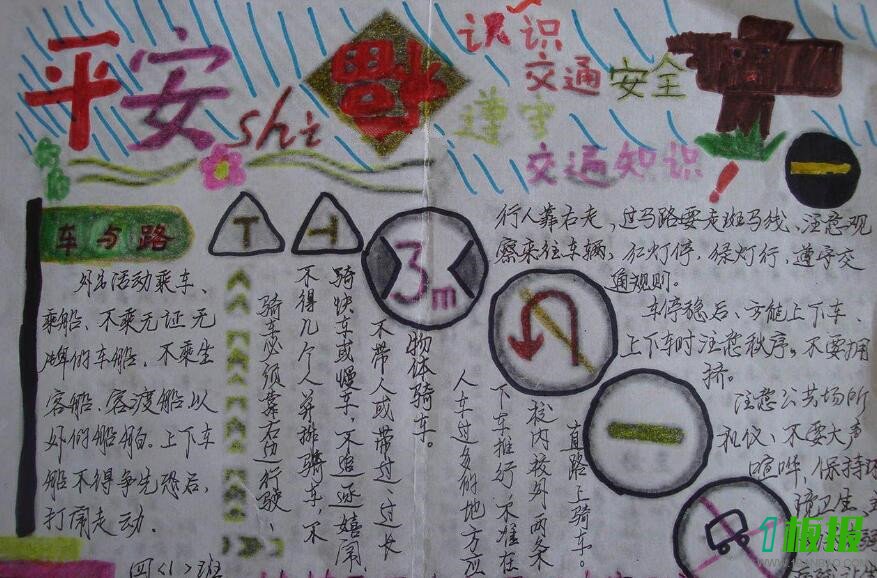 平安shi福
认识
交通安全
遵守
交通知识!
车与路
外出活动乘车、
乘船、不乘无证无
牌的车船、不乘坐
客船、客渡船以
外的船舶。上下车
船不得争先恐后、
打闹走动.
四〈1〉班
骑车必须靠右边行驶、
不得几个人并排骑车、不
骑快车或慢车,不追逐嬉闹、
不带人或带过、过长
物体骑车。
人车过多的地方应
下车推行、不准在
校内校外两条
直路上骑车。
3m
行人靠右走,过马路要走斑马线、注意观
察来往车辆,红灯停,绿灯行,遵守交
通规则.
车停稳后、方能上下车、
上下车时注意秩序,不要拥
挤。
注意公共场所
礼仪、不要大声
喧哗,保持环
境卫生,
1板报